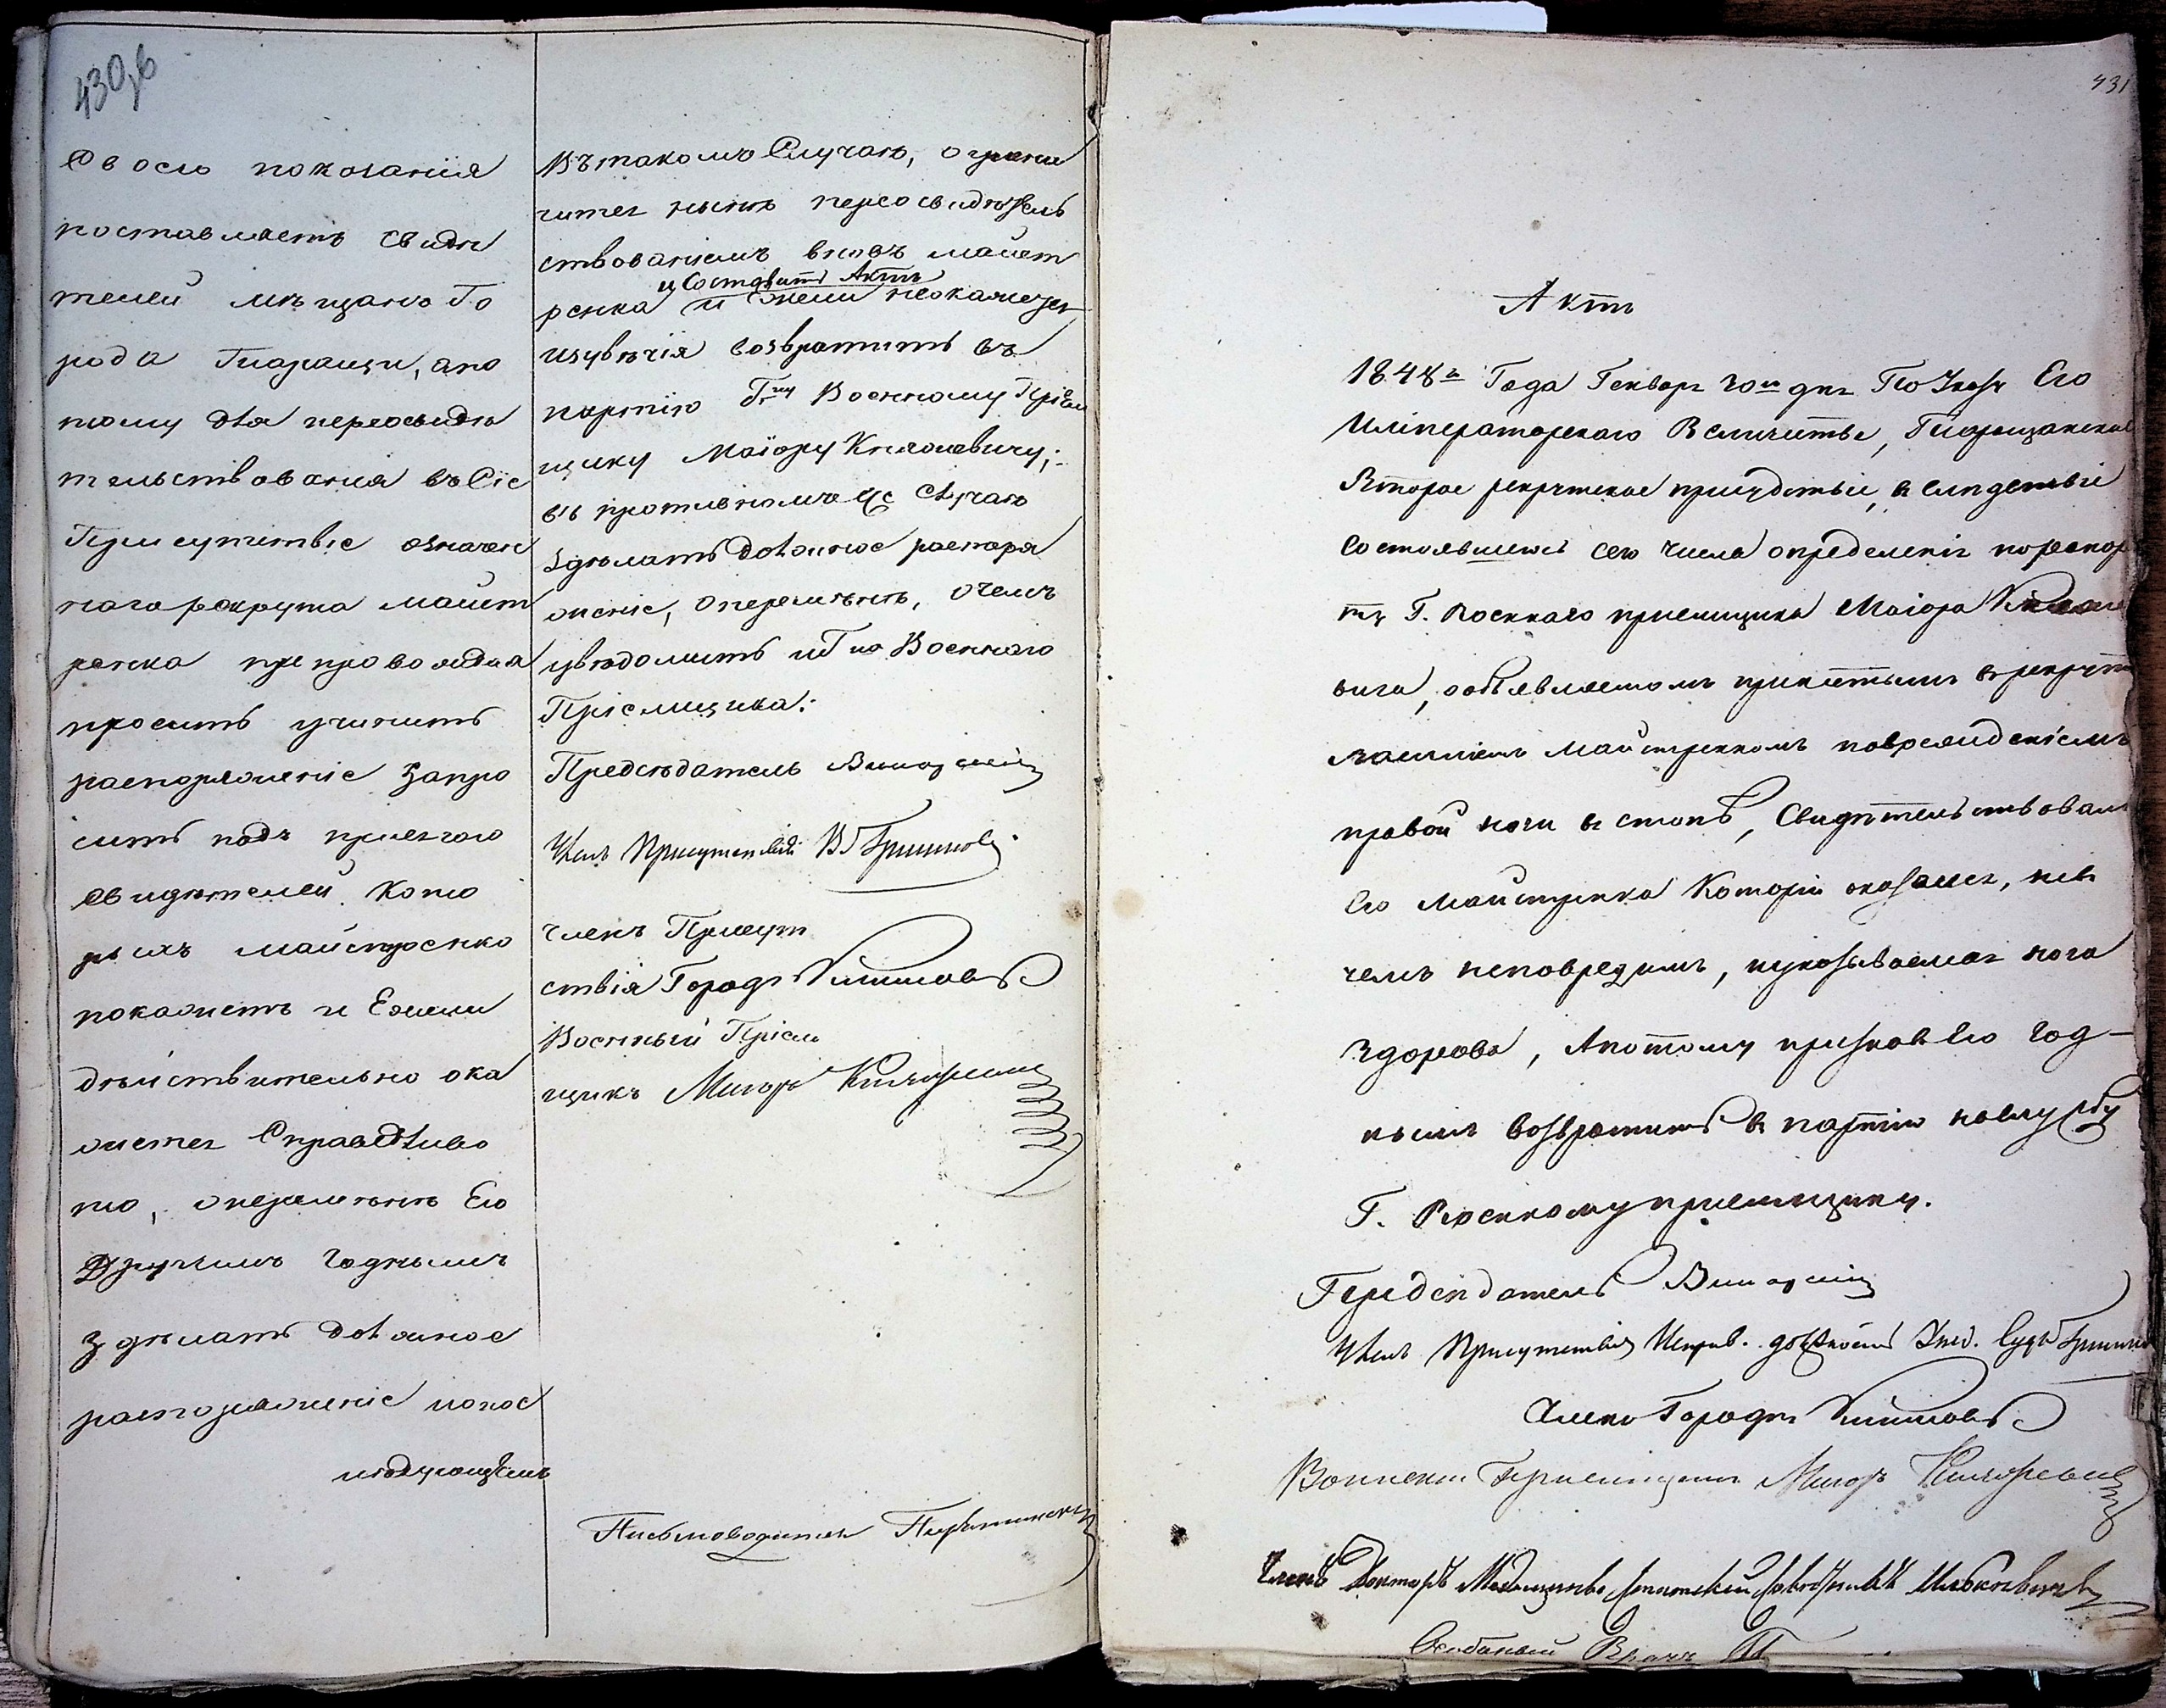 430об
Свосго показанія
поставляетъ свидѣ
телей мѣщанъ Го
рода Таращи, апо
тому для переосвидѣ
тельствованія въ Сіе
Присутствіе означен
наго рекрута Майст
ренка препровождая
проситъ учинить
распоряженіе Запро
сить подъ присягою
свидѣтелей. кото
рыхъ Майстренко
покажетъ и Ежели
дѣйствительно ока
жется Справедливо
то, оперемѣнѣ Его
Другимъ годнымъ
Здѣлать должное
распоряженіе
Въ такомъ Случаѣ, ограни
чится нынѣ переосвидѣтель
ствованіемъ вновь Майст
и Составить Актъ
ренка и ежели неокажется
изувѣчія возвратить въ
партію Гну Военному Пріем
щику Маіору Княжевичу;
въ противномъ же Случаѣ
Здѣлать должное распоря
женіе, Оперемѣнѣ, Очемъ
увѣдомить и Гна Военнаго
Пріемщика:
Предсѣдатель
Членъ Присутствія
Членъ Присут
ствія Городн
Военный Пріем
щикъ Маіоръ
Письмоводитель
431
Актъ
1848го Года Генваря 20го дня По Указу Его
Императорскаго Величества, Таращанское
Второе рекрутское присудствіе, в следствіе
Состоявшегось сего числа определенія порапор
ту Г. Военнаго приемщика Маіора Княже
вича, объявляемомъ принятымъ в рекруты
Майстренкомъ поврежденіемъ
правой ноги в стопѣ, Свидѣтельствовали
Его Майстренка Который оказался, нев
чемъ неповредимъ, иуказываемая нога
Здорова, Апотому признавъ Его год-
нымъ возвратить в партію
Г. Военному приемщику.
Предсѣдатель
Членъ Присутствія Исправ. должность Уезд. Судьи
Членъ Городн
Воинскій Приемщикъ Маіоръ
Членъ Докторъ Медицины
Врачъ